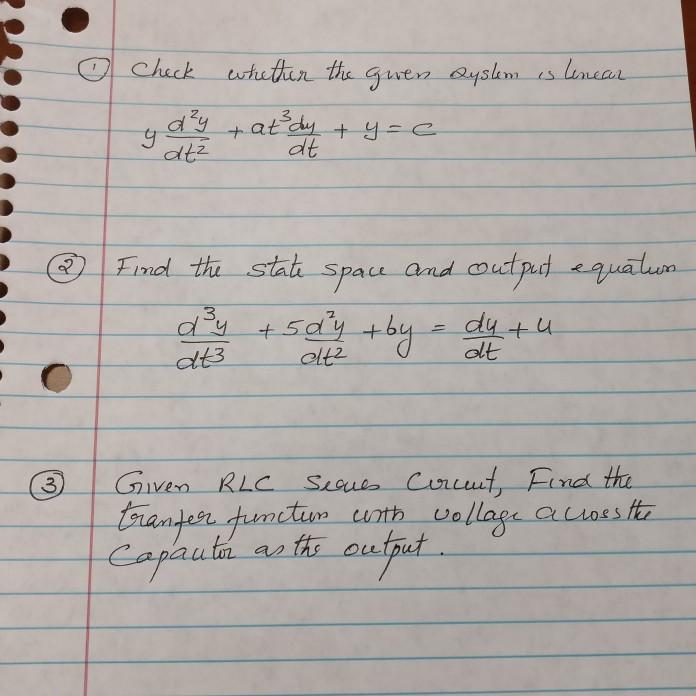 ① Check whether the given system is linear
y d²y/dt² + at³ dy/dt + y = c
② Find the state space and output equation
d³y/dt³ + 5d²y/dt² + 6y = du/dt + u
③ Given RLC Series Circuit, Find the
tranfer function with voltage across the
Capacitor as the output.